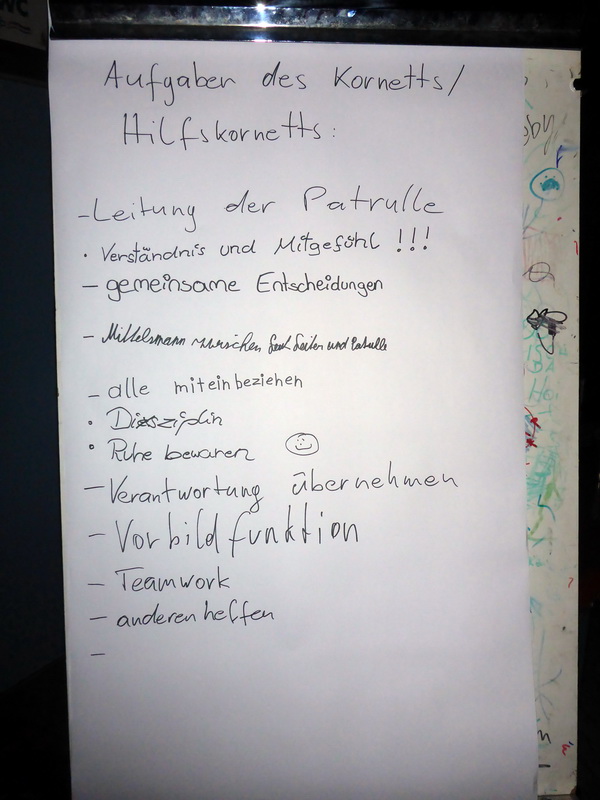 WC
Aufgaben des Kornetts/
Hilfskornetts:
-Leitung der Patrulle
• Verständnis und Mitgefühl !!!
- gemeinsame Entscheidungen
- Mittelsmann zwischen Leiter und Patrulle
- alle miteinbeziehen
• Disziplin
• Ruhe bewaren
- Verantwortung übernehmen
- Vorbildfunktion
- Teamwork
- anderen helfen
-